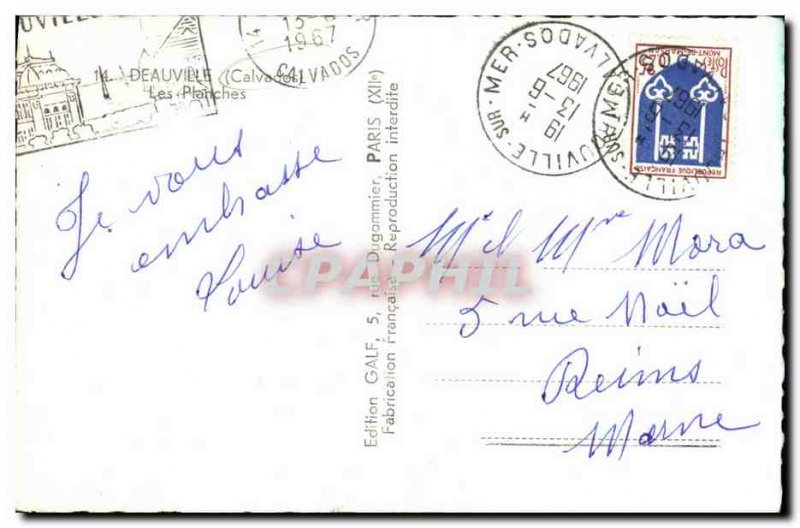 UVILLE
14
1967
CALVADOS
14. DEAUVILLE (Calvados)
Les Planches
Je vous
embrasse
Louise
Edition GALF, 5, rue Dugommier, PARIS (XIIe)
Fabrication Française - Reproduction interdite
UVILLE-SUR-MER-CALVADOS
19 H
13-6
1967
POSTES
MONT-DE-MARSAN
REPUBLIQUE FRANÇAISE
M. et Mme Mora
5 rue Noël
Reims
Marne
CPAPHIL